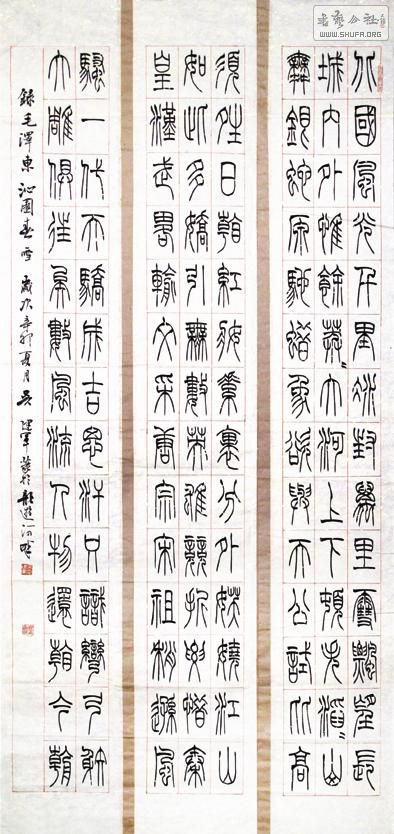 北國風光千里冰封萬里雪飄望長
城内外惟餘莽〻大河上下頓失滔〻山
舞銀蛇原馳蠟象欲與天公試比高
須晴日看紅妝素裹分外妖嬈江山
如此多嬌引無數英雄競折腰惜秦
皇漢武略輸文采唐宗宋祖稍遜風
騷一代天驕成吉思汗只識彎弓射
大雕俱往矣數風流人物還看今朝
録毛澤東沁園春雪 歲次辛卯夏月吴建軍篆於龍遊河畔
书艺公社
WWW.SHUFA.ORG